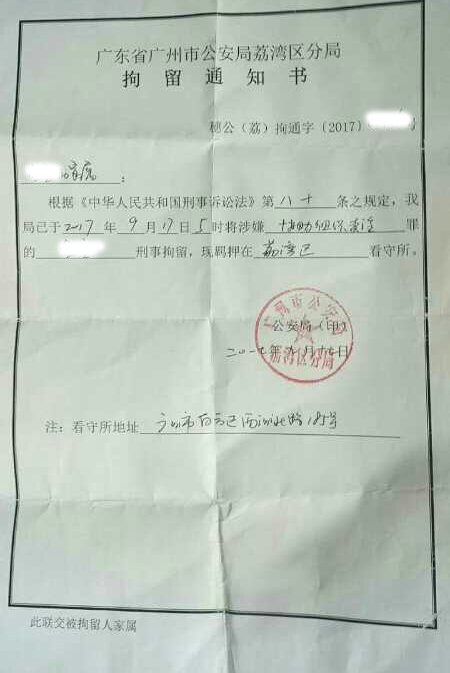 广东省广州市公安局荔湾区分局
拘留通知书
穗公（荔）拘通字〔2017〕 号
家属：
根据《中华人民共和国刑事诉讼法》第 八十 条之规定，我
局已于 2017 年 9 月 17 日 5 时将涉嫌 协助组织卖淫 罪
的 刑事拘留，现羁押在 荔湾区 看守所。
广州市公安局
荔湾区分局
公安局（印）
二〇一七年九月十七日
注：看守所地址 广州市白云区西洲北路185号
此联交被拘留人家属